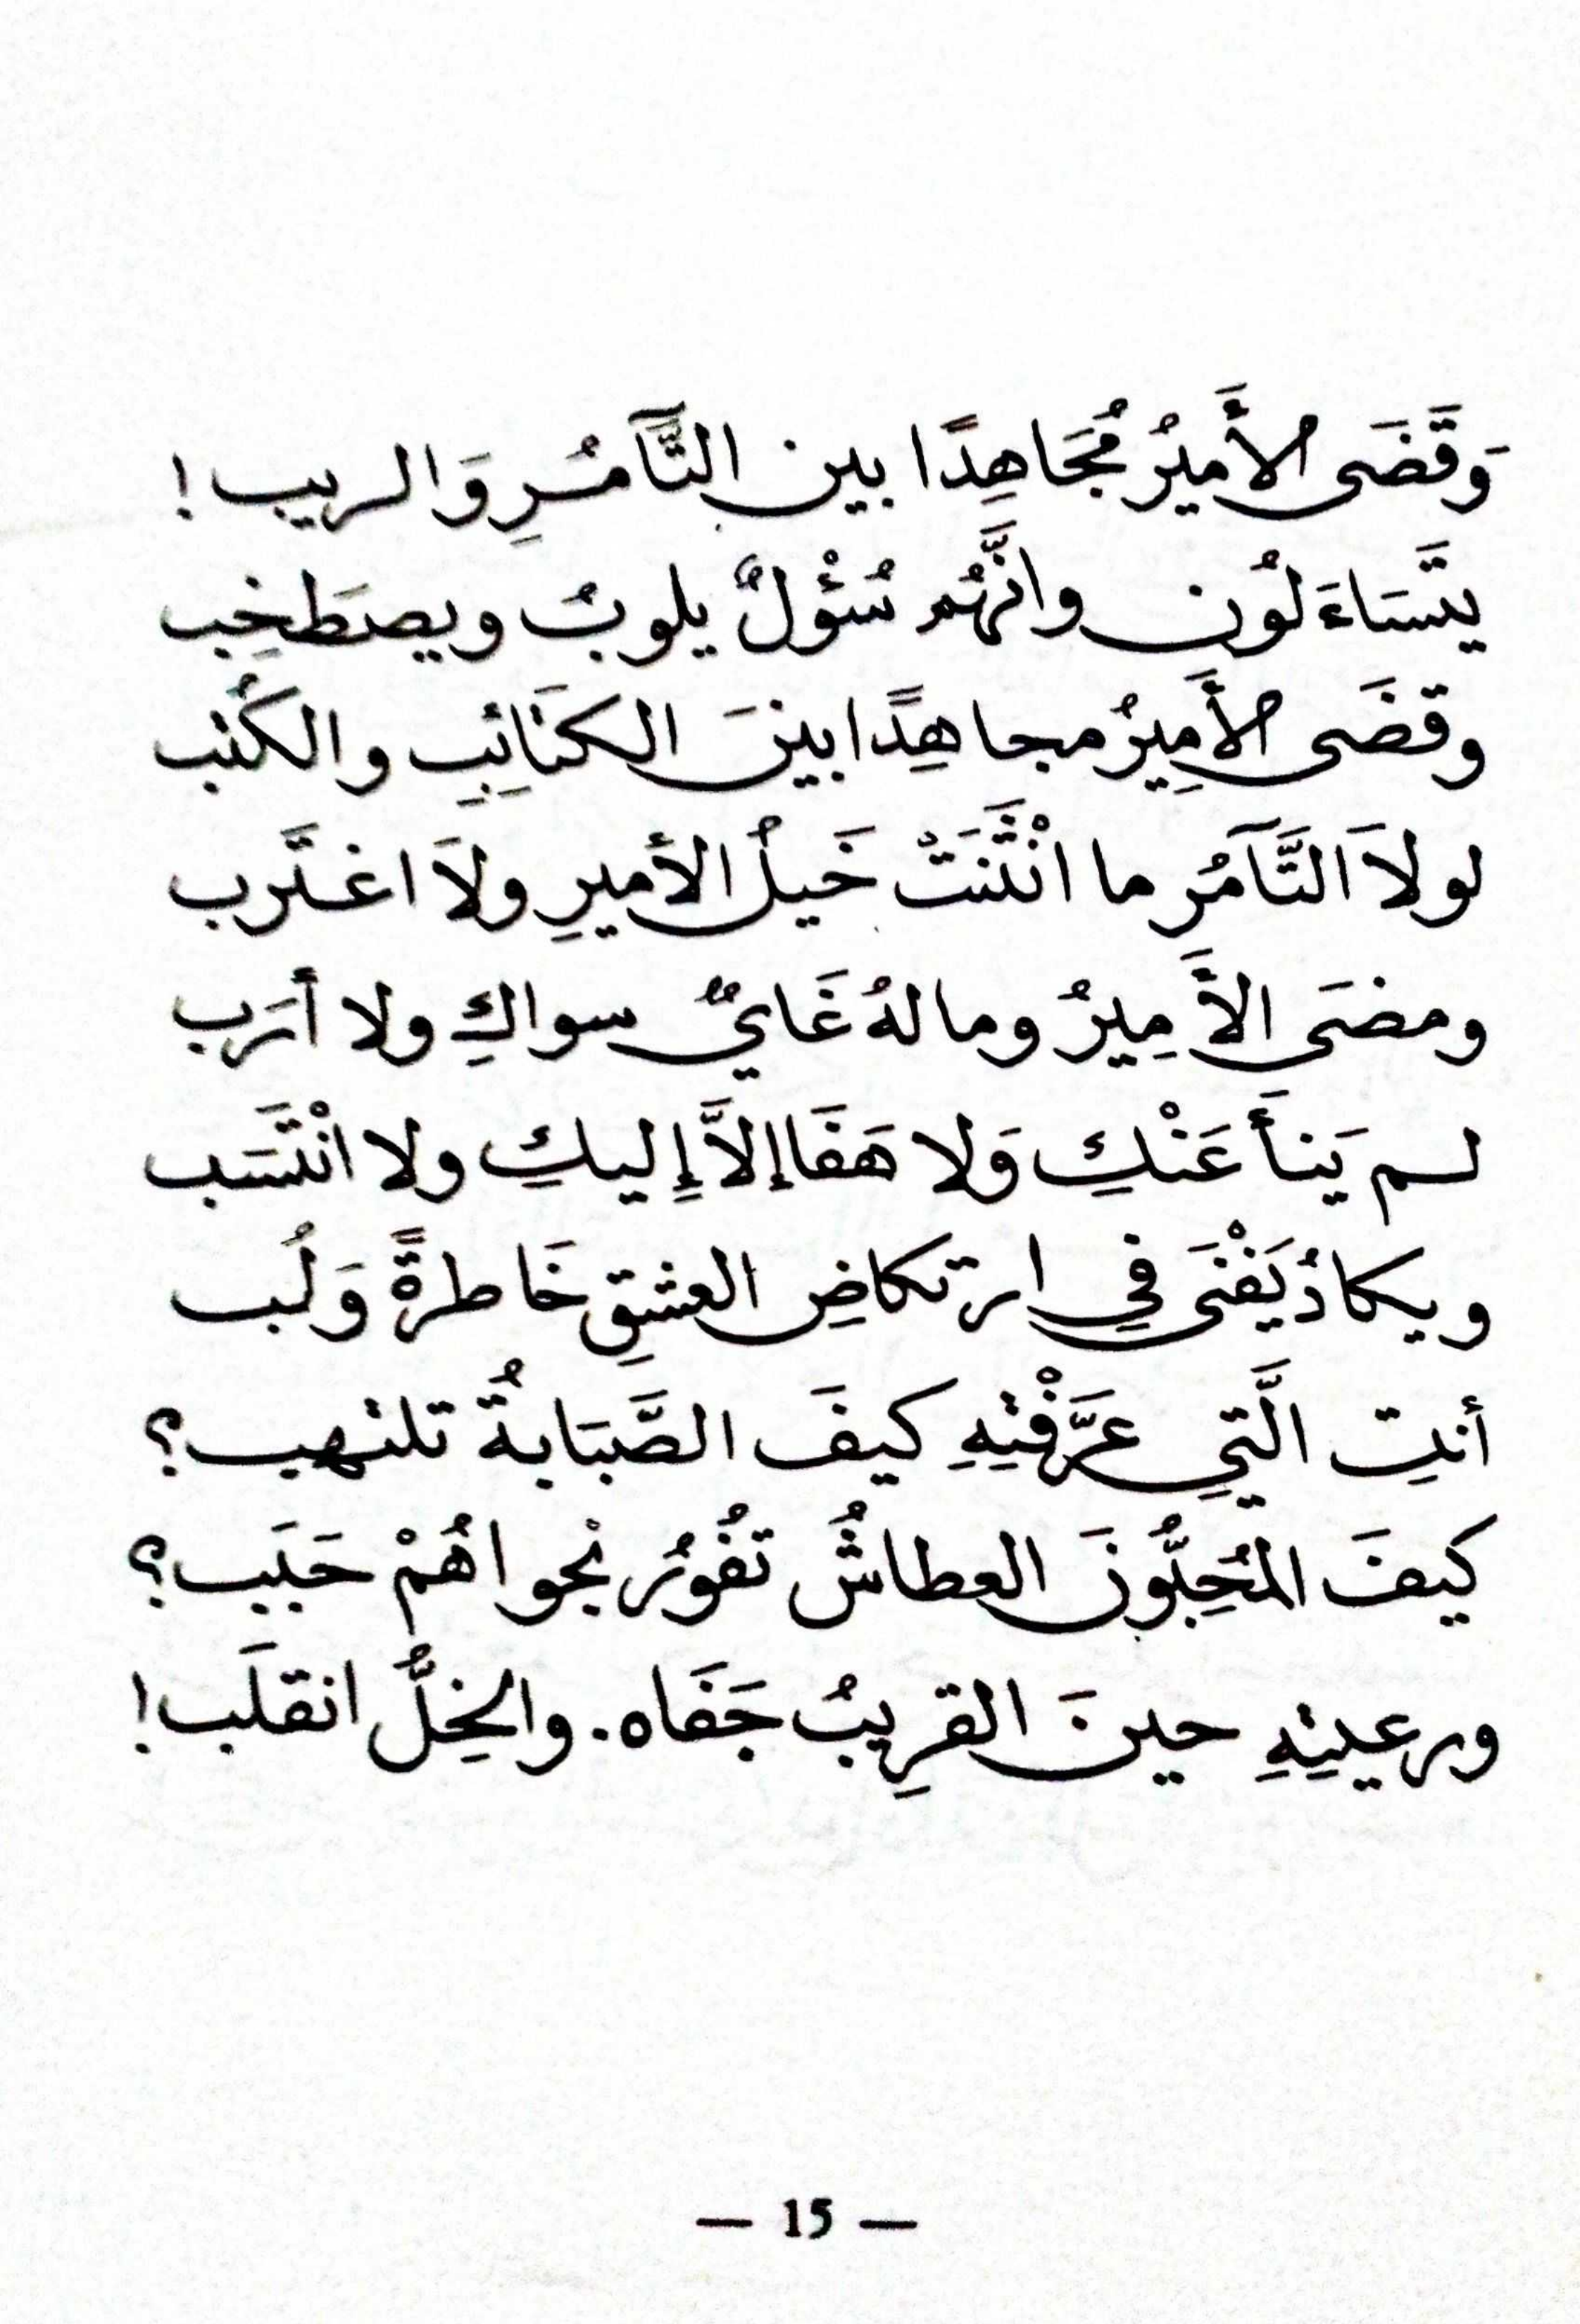 وَقَضَى الأَمِيرُ مُجَاهِدًا بين التَّآمُرِ وَالريب!
يتَسَاءَلُون وانَّهُم سُؤْلٌ يلوبُ ويصطَخِب
وقضَى الأَمِيرُ مجاهِدًا بينَ الكتَائِبِ والكُتب
لولاَ التَّآمُر ما انْثَنَتْ خَيلُ الأميرِ ولاَ اغترَب
ومضَى الأَمِيرُ وما لهُ غَايٌ سواكِ ولا أرَب
لم يَنأَ عَنْكِ وَلا هَفَا إلاَّ إِليكِ ولا انْتَسَب
ويكادُ يَفْنَى فِي ارتكاضِ العشقِ خَاطرةً وَلُب
أنتِ الَّتيِ عَرَّفْتِهِ كيفَ الصَّبَابةُ تلتهب؟
كيفَ المُحِبُّونَ العطاشُ تفُورُ نجواهُمْ حَبَب؟
ورعيتِهِ حينَ القرِيبُ جَفَاه. والخِلُّ انقلَب!
— 15 —